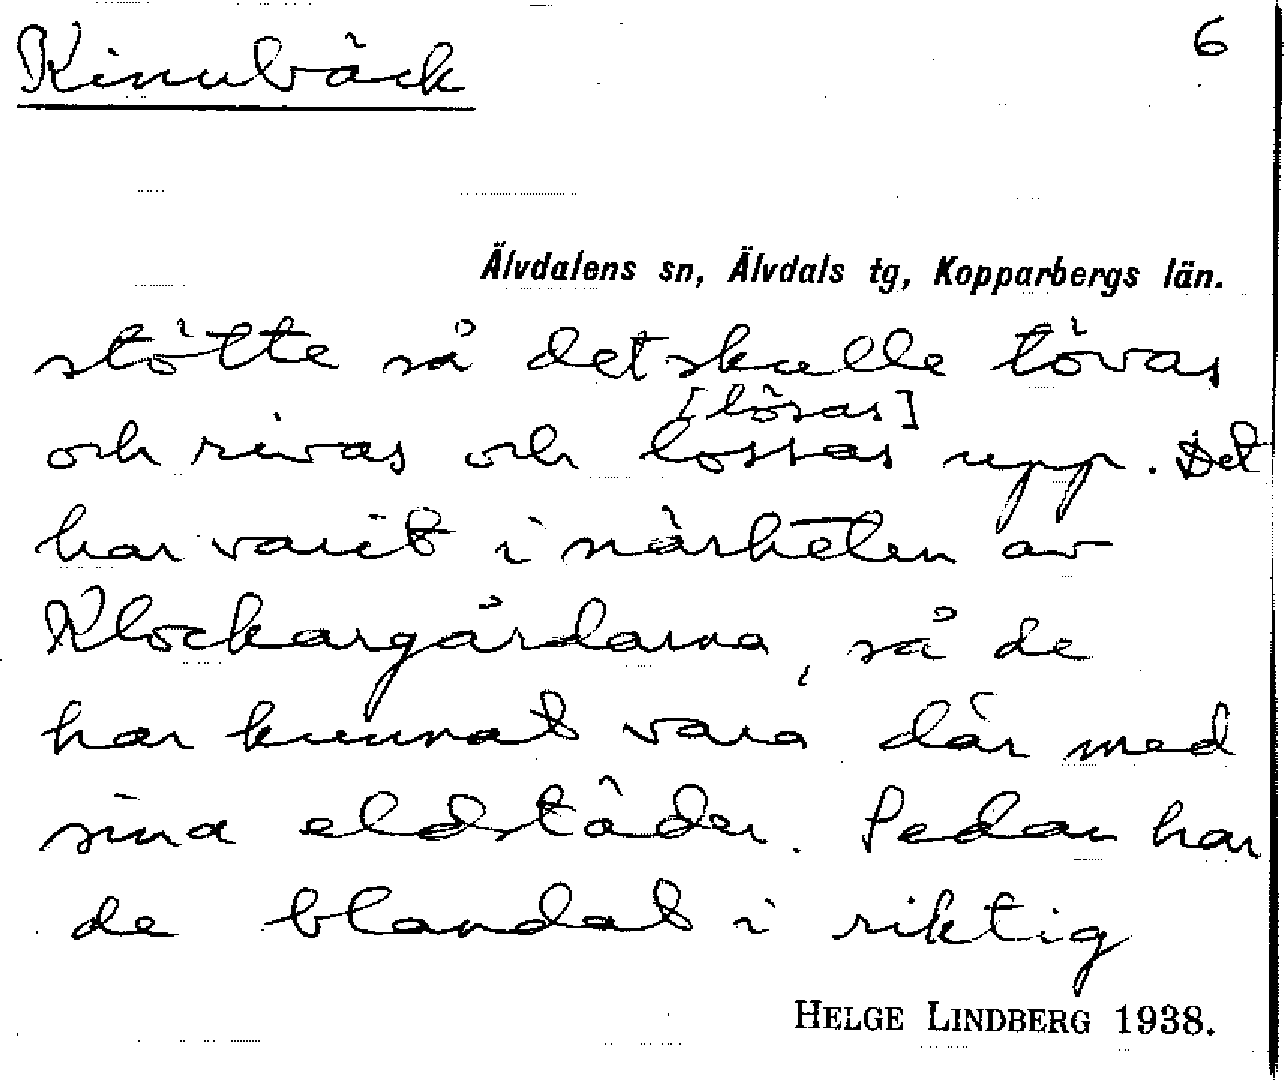 Kinubäck
6
Älvdalens sn, Älvdals tg, Kopparbergs län.
stötte så det skulle tövas
[lösas]
och rivas och lossas upp. Det
har varit i närheten av
Klockargårdarna, så de
har kunnat vara där med
sina eldstäder. Sedan har
de blandat i riktig
HELGE LINDBERG 1938.